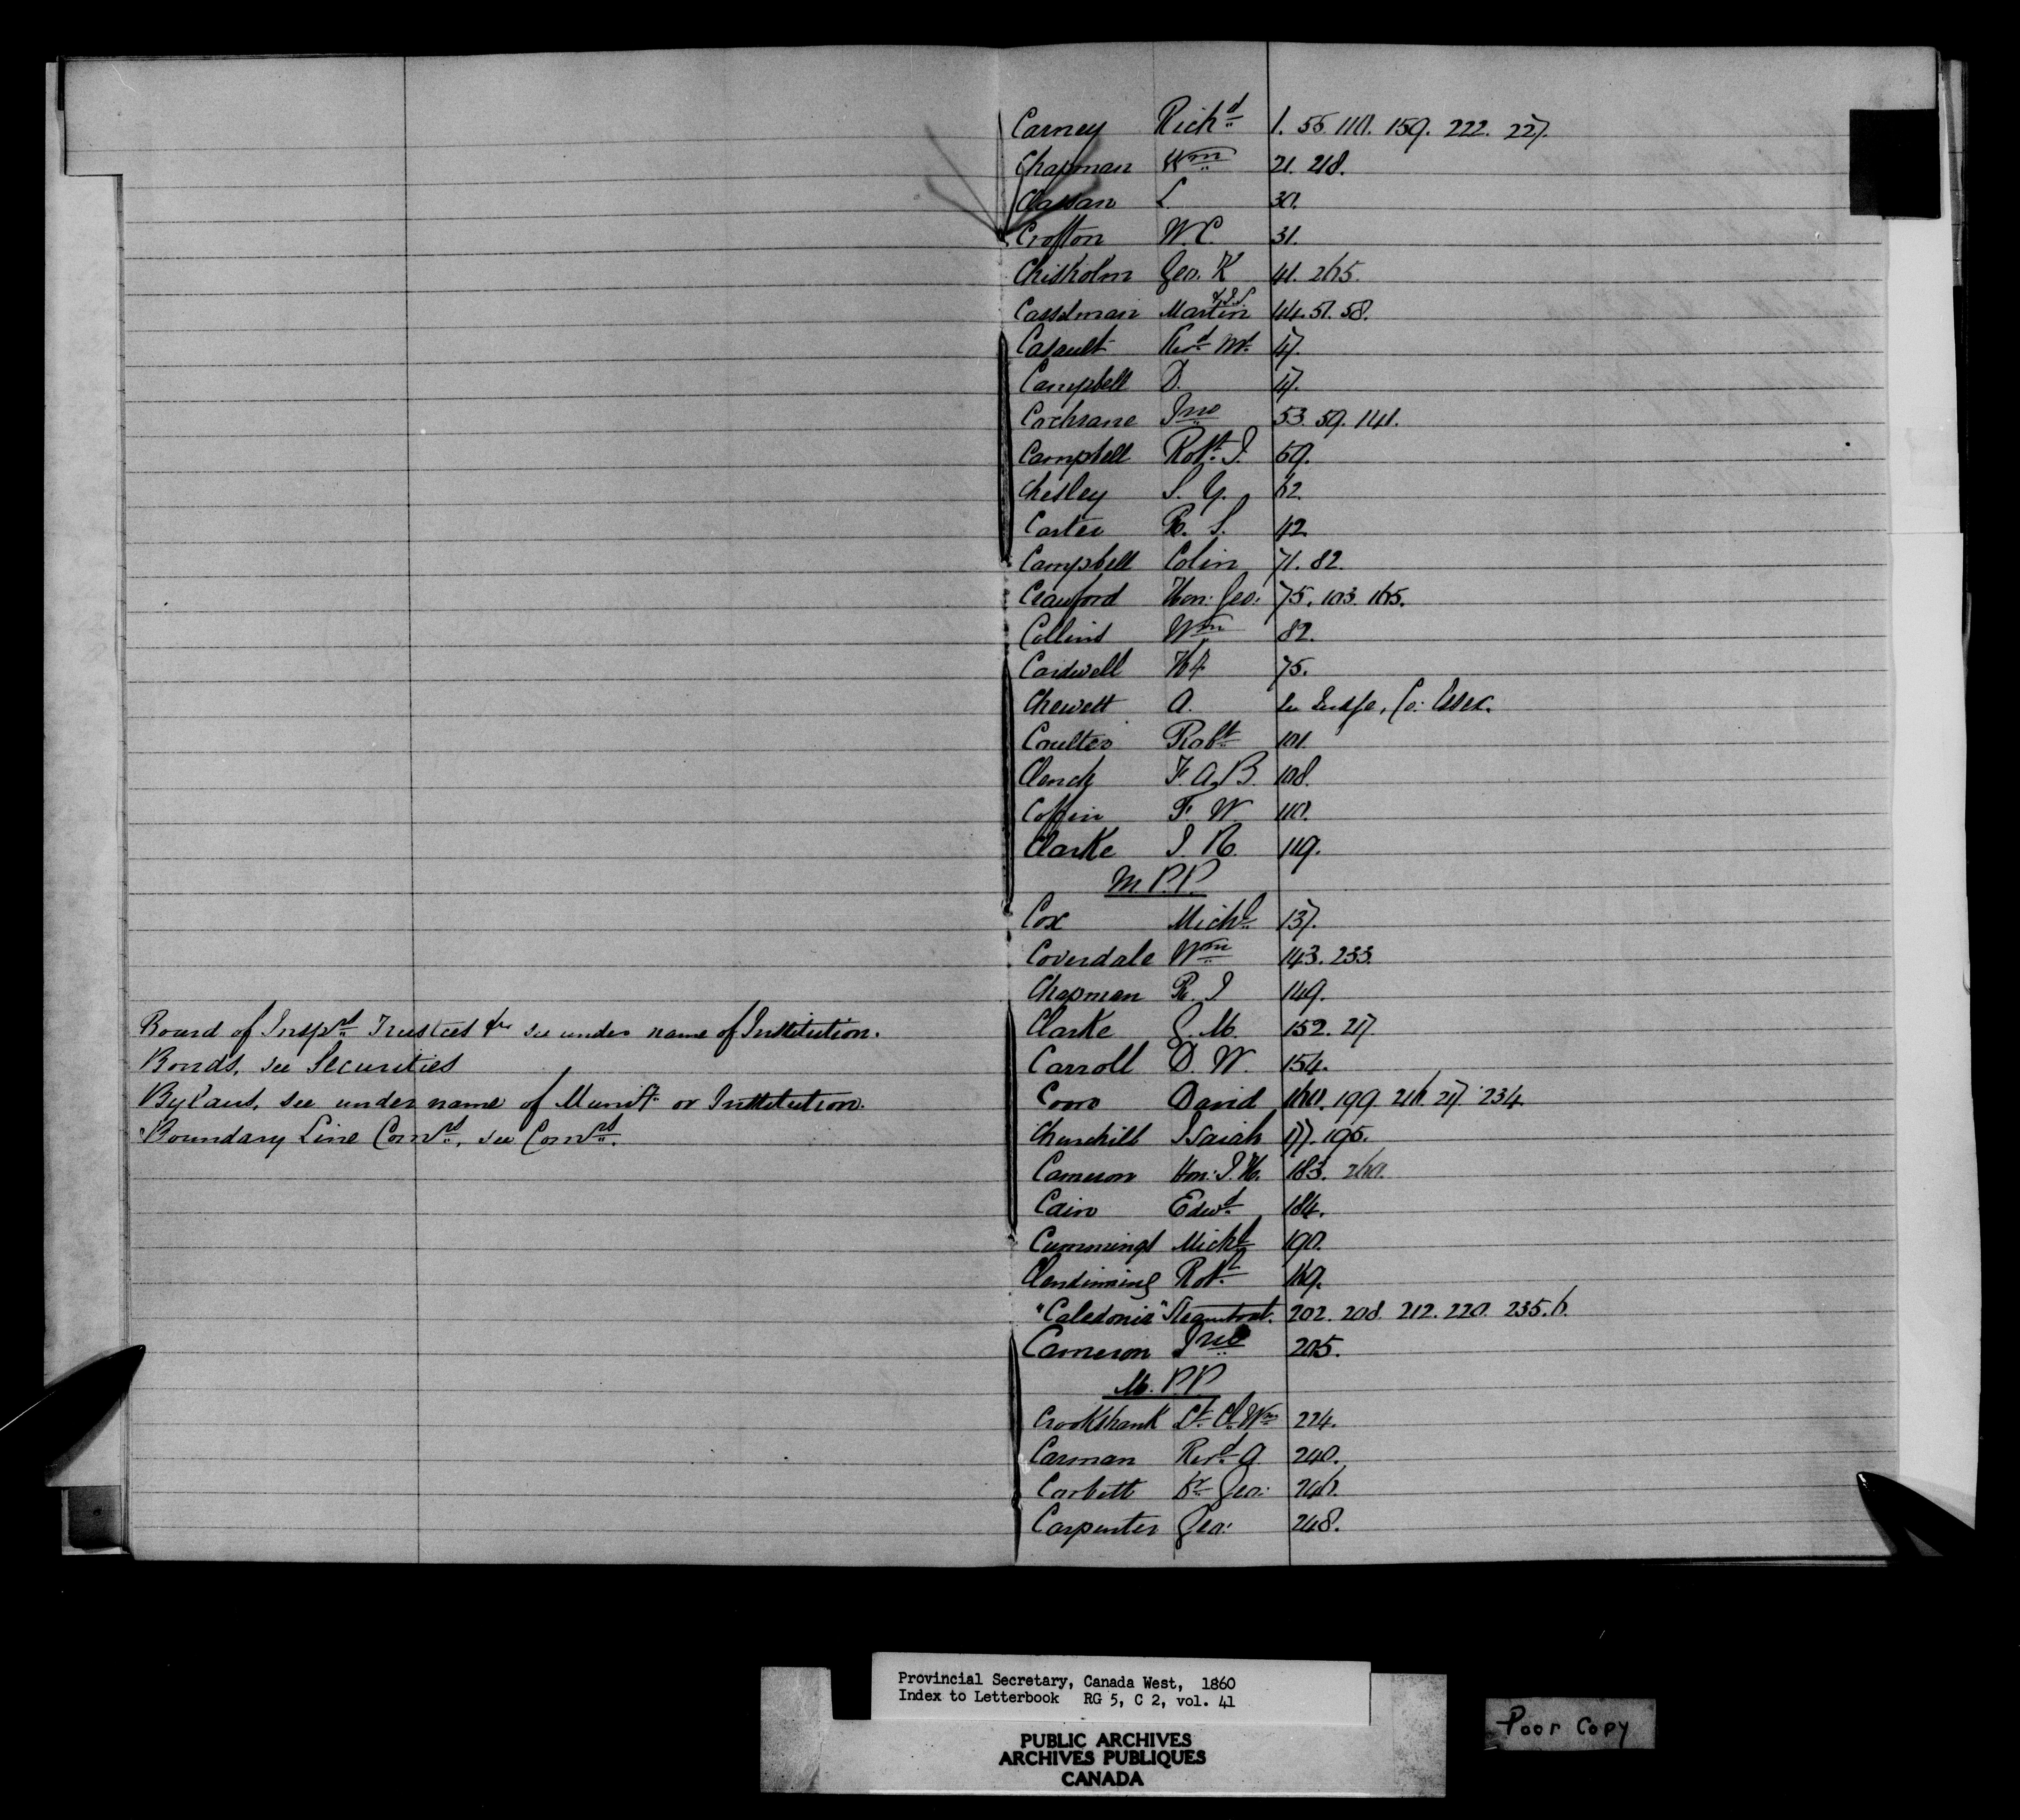 Board of Insp.rs Trustees &c see under name of Institution.
Bonds, see Securities
Bylaws, see under name of Munity. or Institution.
Boundary Line Comrs, see Comrs.
Carney Richd 1. 55. 110. 159. 222. 227.
Chapman Wm 21. 218.
Classan L. 30.
Crofton W.C. 31.
Chisholm Geo. K 41. 265.
Casselman Martin & J.S. 44. 51. 58.
Casault Revd 47.
Campbell D. 47.
Cochrane Jno 53. 59. 141.
Campbell Robt. J. 59.
Chesley S. Y. 62.
Carter R. S. 42.
Campbell Colin 71. 82.
Crawford Hon: Geo: 75. 103. 165.
Collins Wm 82.
Cardwell 75.
Chewett A. See Co: Essex.
Coulter Robt 101.
Clench F. A. B. 108.
Coffin F. W. 110.
Clarke J. R. 119.
M.P.P.
Cox Michl 137.
Coverdale Wm 143. 233.
Chapman R. J 149.
Clarke G. M. 152. 217.
Carroll D. W. 154.
Coon David 160. 199. 216. 217. 234.
Churchill Isaiah 177. 195.
Cameron Hon: J. H. 183. 260.
Cain Edwd 184.
Cummings Michl 190.
Clendinning Robt 169.
"Caledonia" Steamboat. 202. 208. 212. 220. 235. 6.
Cameron Jno 205.
M.P.P.
Crookshank Lt. Cl. Wm 224.
Carman Revd A. 240.
Corbett Dr Geo: 246.
Carpenter Geo: 248.
Provincial Secretary, Canada West, 1860
Index to Letterbook RG 5, C 2, vol. 41
PUBLIC ARCHIVES
ARCHIVES PUBLIQUES
CANADA
Poor Copy